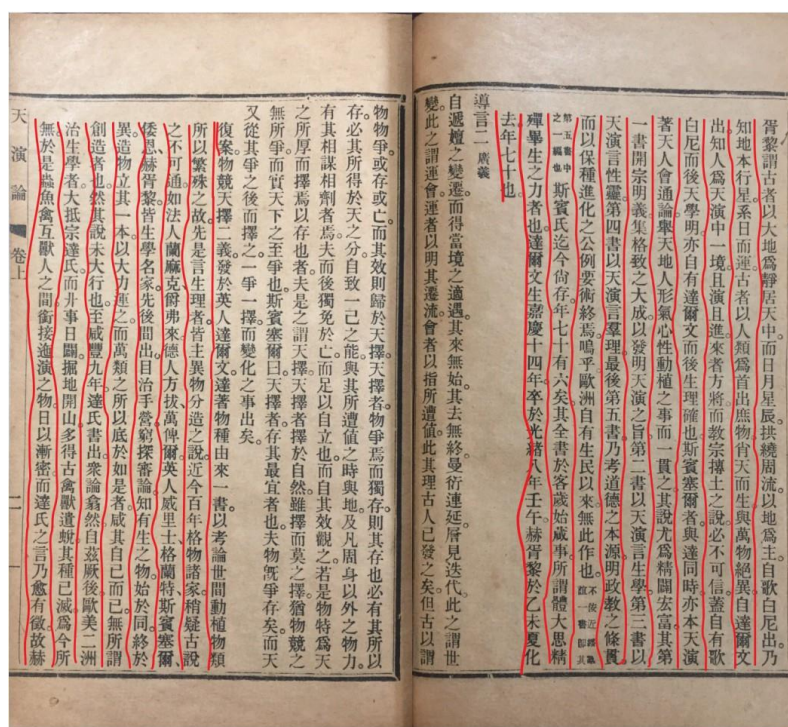 胥黎謂古者以大地爲靜居天中。而日月星辰。拱繞周流。以地爲主。自歌白尼出。乃
知地本行星。系日而運。古者以人類爲首出庶物。肖天而生。與萬物絕異。自達爾文
出。知人爲天演中一境。且演且進。來者方將。而教宗摶土之說。必不可信。蓋自有歌
白尼而後天學明。亦自有達爾文而後生理確也。斯賓塞爾者。與達同時。亦本天演
著天人會通論。舉天地人形氣心性動植之事而一貫之。其說尤爲精闢宏富。其第
一書開宗明義。集格致之大成。以發明天演之旨。第二書以天演言生學。第三書以
天演言性靈。第四書以天演言羣理。最後第五書。乃考道德之本源。明政教之條貫。
而以保種進化之公例要術終焉。嗚乎。歐洲自有生民以來。無此作也。不佞近繙羣誼一書即其
第五書中之一編也 斯賓氏迄今尙存。年七十有六矣。其全書於客歲始蕆事。所謂體大思精。
殫畢生之力者也。達爾文生嘉慶十四年。卒於光緒八年壬午。赫胥黎於乙未夏化
去。年七十也。
導言二 廣義
自遞嬗之變遷。而得當境之適遇。其來無始。其去無終。曼衍連延。層見迭代。此之謂世
變。此之謂運會。運者以明其遷流。會者以指所遭值。此其理古人已發之矣。但古以謂
物物爭。或存或亡。而其效則歸於天擇。天擇者。物爭焉而獨存。則其存也。必有其所以
存。必其所得於天之分。自致一己之能。與其所遭值之時與地。及凡周身以外之物力。
有其相謀相劑者焉。夫而後獨免於亡。而足以自立也。而自其效觀之。若是物特爲天
之所厚而擇焉以存也者。夫是之謂天擇。天擇者擇於自然。雖擇而莫之擇。猶物競之
無所爭。而實天下之至爭也。斯賓塞爾曰。天擇者。存其最宜者也。夫物既爭存矣。而天
又從其爭之後而擇之。一爭一擇。而變化之事出矣。
復案物競天擇二義。發於英人達爾文。達著物種由來一書。以考論世間動植物類
所以繁殊之故。先是言生理者。皆主異物分造之說。近今百年格物諸家。稍疑古說
之不可通。如法人蘭麻克、爵弗來、德人方拔、萬俾爾、英人威里士、格蘭特、斯賓塞爾、
倭恩、赫胥黎、皆生學名家。先後間出。目治手營。窮探審論。知有生之物。始於同。終於
異。造物立其一本。以大力運之。而萬類之所以底於如是者。咸其自己而已。無所謂
創造者也。然其說未大行也。至咸豐九年。達氏書出。衆論翕然。自茲厥後。歐美二洲
治生學者。大抵宗達氏。而廾事日闢。掘地開山。多得古禽獸遺蛻。其種已滅。爲今所
無。於是蟲魚禽互獸人之間。銜接迤演之物。日以漸密。而達氏之言乃愈有徵。故赫
天演論 卷上 二